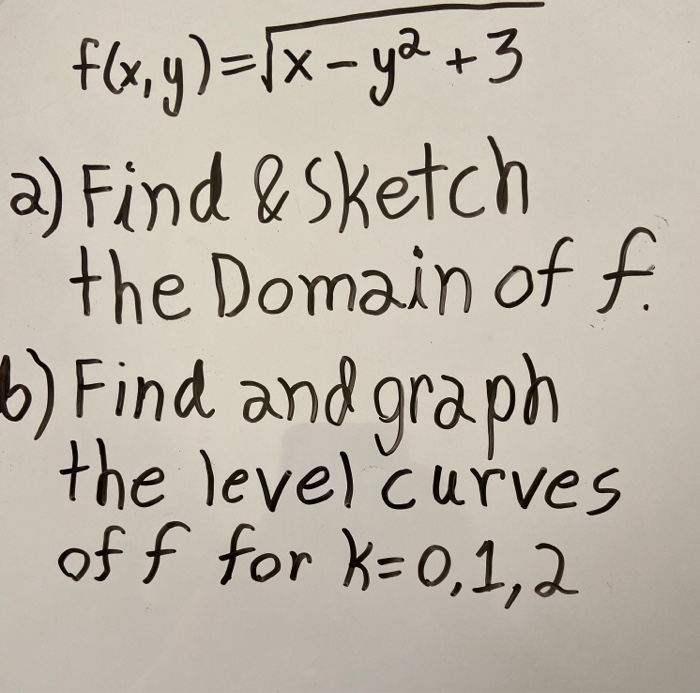 f(x,y)=√x-y²+3
a) Find & Sketch
the Domain of f.
b) Find and graph
the level curves
of f for k=0,1,2